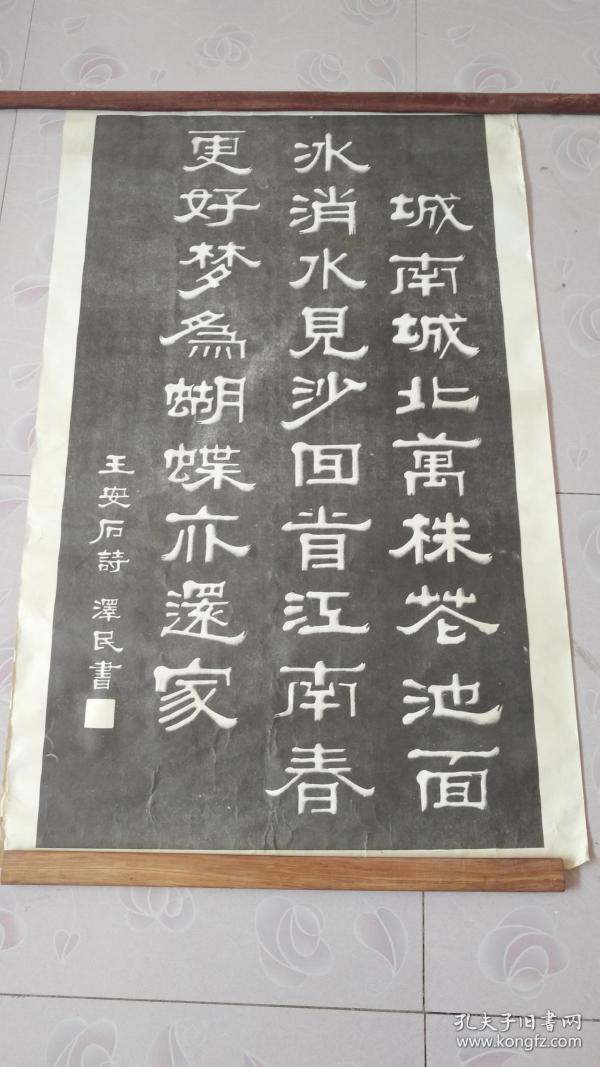 城南城北萬株花池面
冰消水見沙回首江南春
更好梦為蝴蝶亦還家
王安石詩 澤民書
孔夫子旧書网
www.kongfz.com